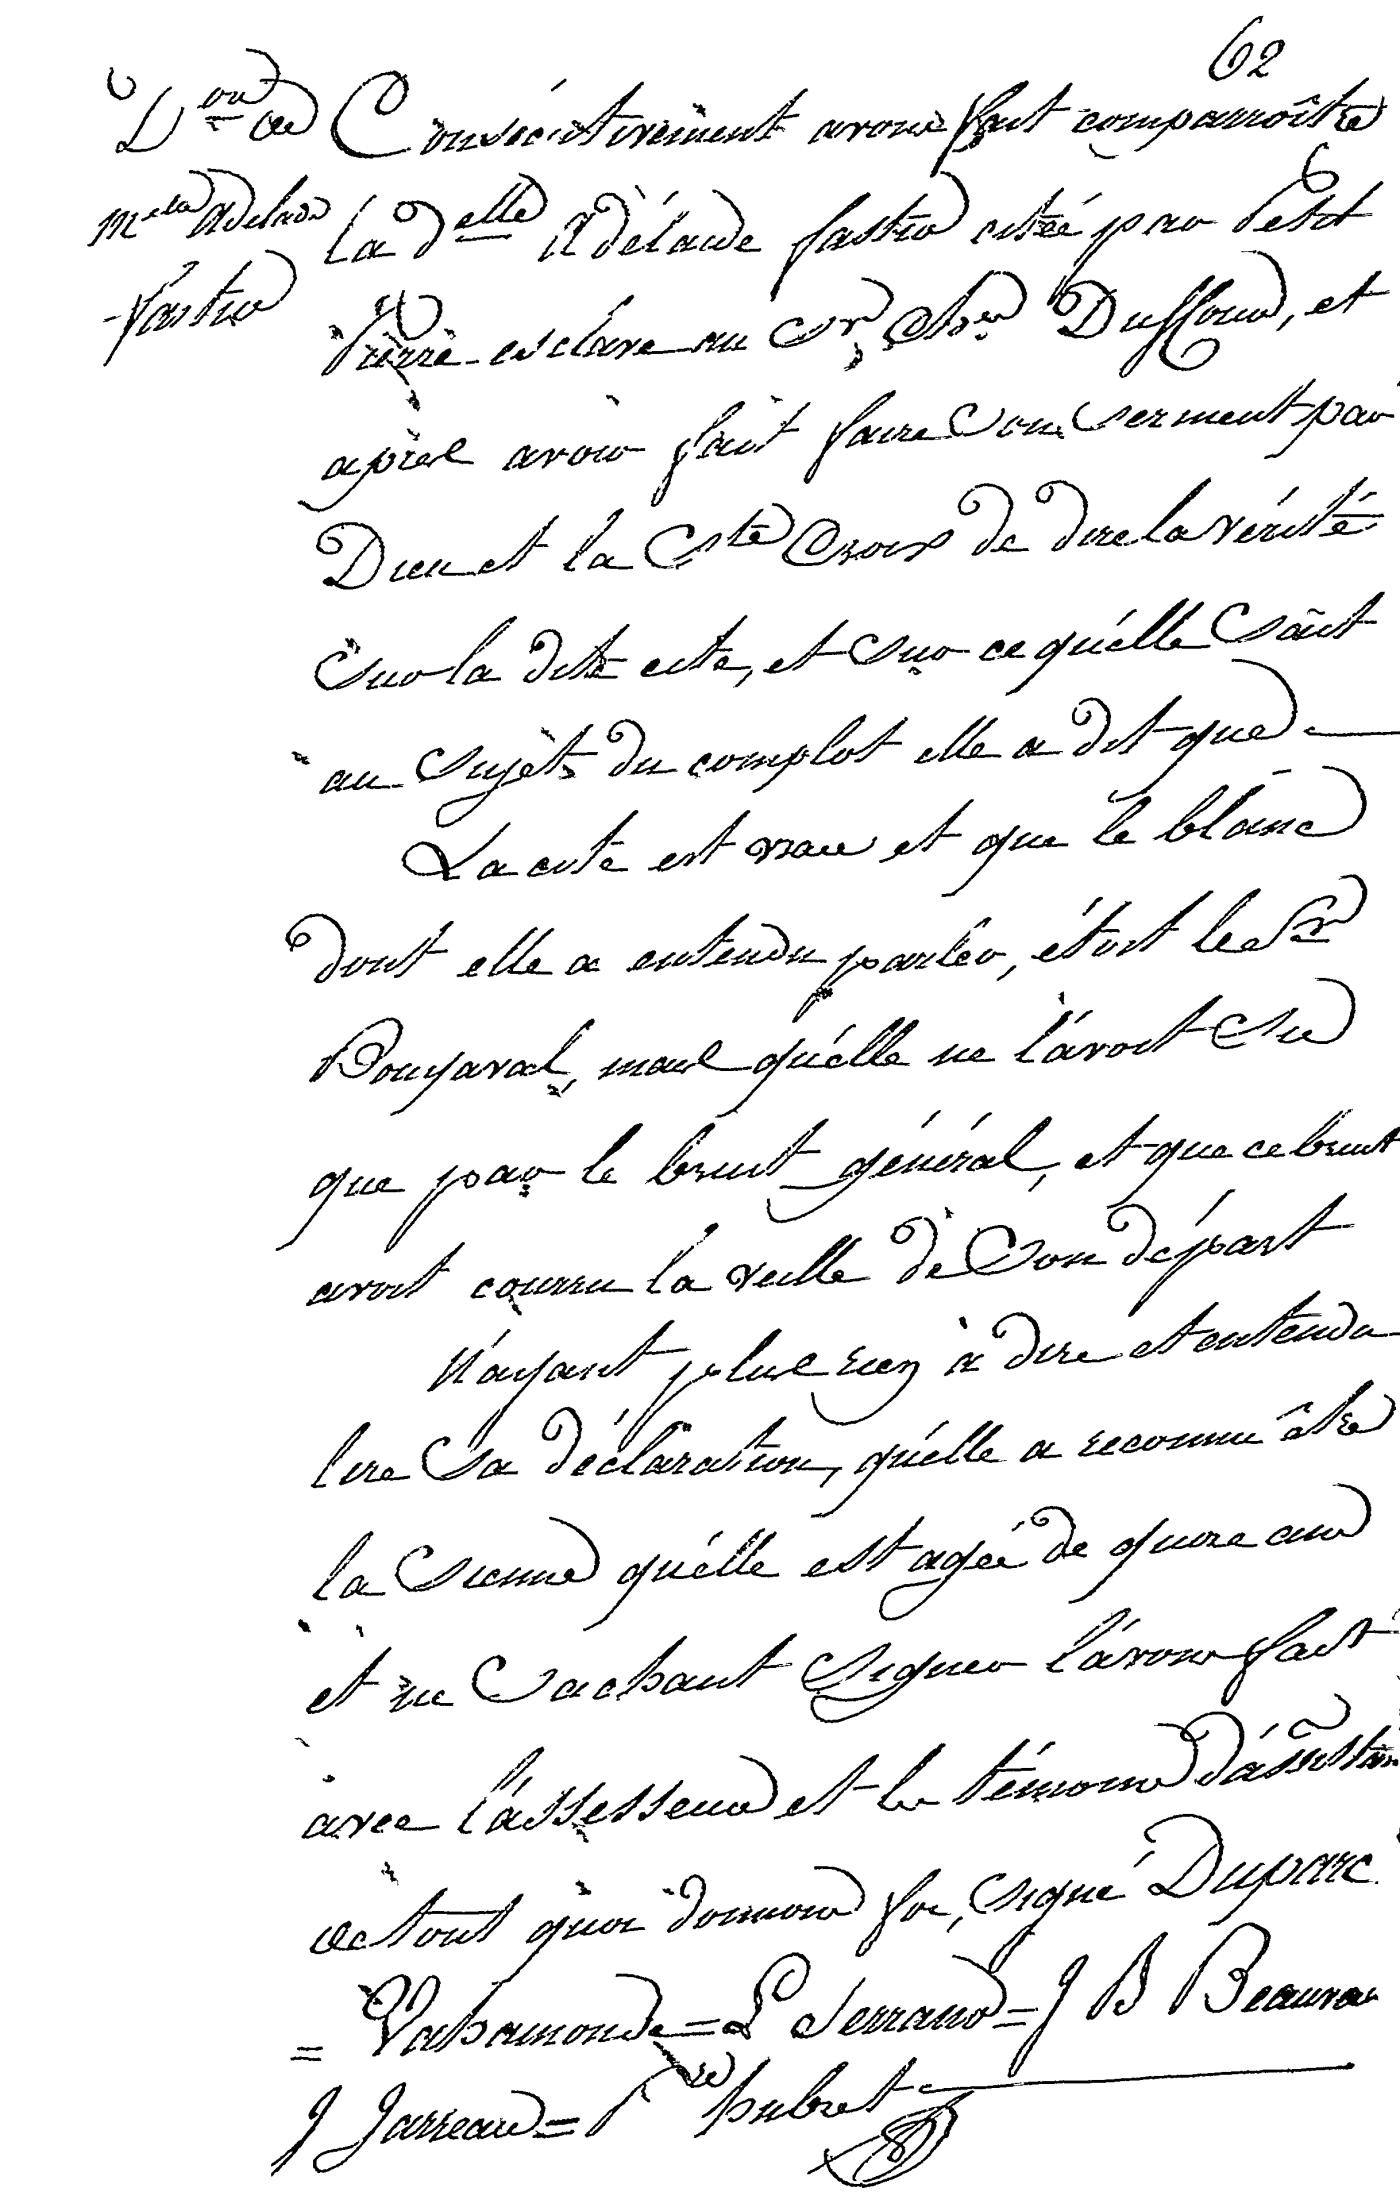 62
D.on de
Melle Adelaide
fastio
Consécutivement avons fait comparroître
la Delle Adélaide fastio citéé par Petit
Pierre esclave au Sr. Cher. Duffour, et
après avoir fait faire son serment par
Dieu et la Ste Croix de dire la vérité
sur la dite cite, et sur ce qu'élle sait
au sujèt du complot elle a dit que
La cite est vraie et que le blanc
dont elle a entendu parlér, étoit le Sr
Bouyaval, mais qu'élle ne l'ávoit su
que par le bruit général, et que ce bruit
avoit courru la veille de son départ
N'ayant plus rien à dire et entendu
lire sa déclaration, qu'élle a reconnu être
la sienne qu'élle est agée de quinze ans
et ne sachant signer l'ávons fait
avec l'ássesseur et les témoins d'ássistance
de tout quoi donnons foi, signé Duparc
= Vahamonde = L Serrano = J B Beauvais
J Jarreau = Pre hubert